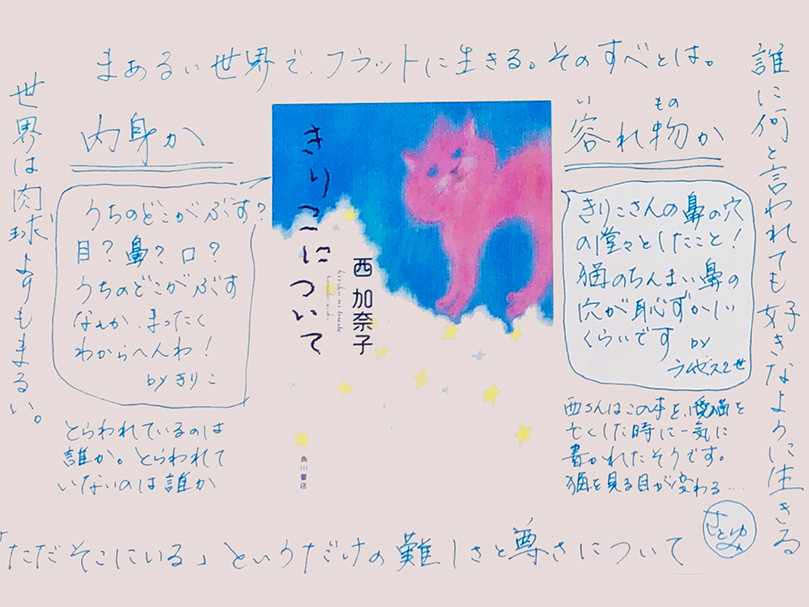 まあるい世界で、フラットに生きる。そのすべとは。
誰に何と言われても好きなように生きる
世界は肉球よりもまるい。
内身か
容れ物か
い もの
うちのどこがぶす?
目?鼻?口?
うちのどこがぶす
なんか、まったく
わからへんわ!
by きりこ
とらわれているのは
誰か。とらわれて
いないのは誰か
きりこについて
西 加奈子
kiriko ni tsuite
角川書店
きりこさんの鼻の穴
の堂々としたこと!
猫のちんまい鼻の
穴が恥ずかしい
くらいです by
ラムセス2世
西さんはこの本を、愛猫を
亡くした時に一気に
書かれたそうです。
猫を見る目が変わる……
さとゆみ
「ただそこにいる」というだけの難しさと尊さについて